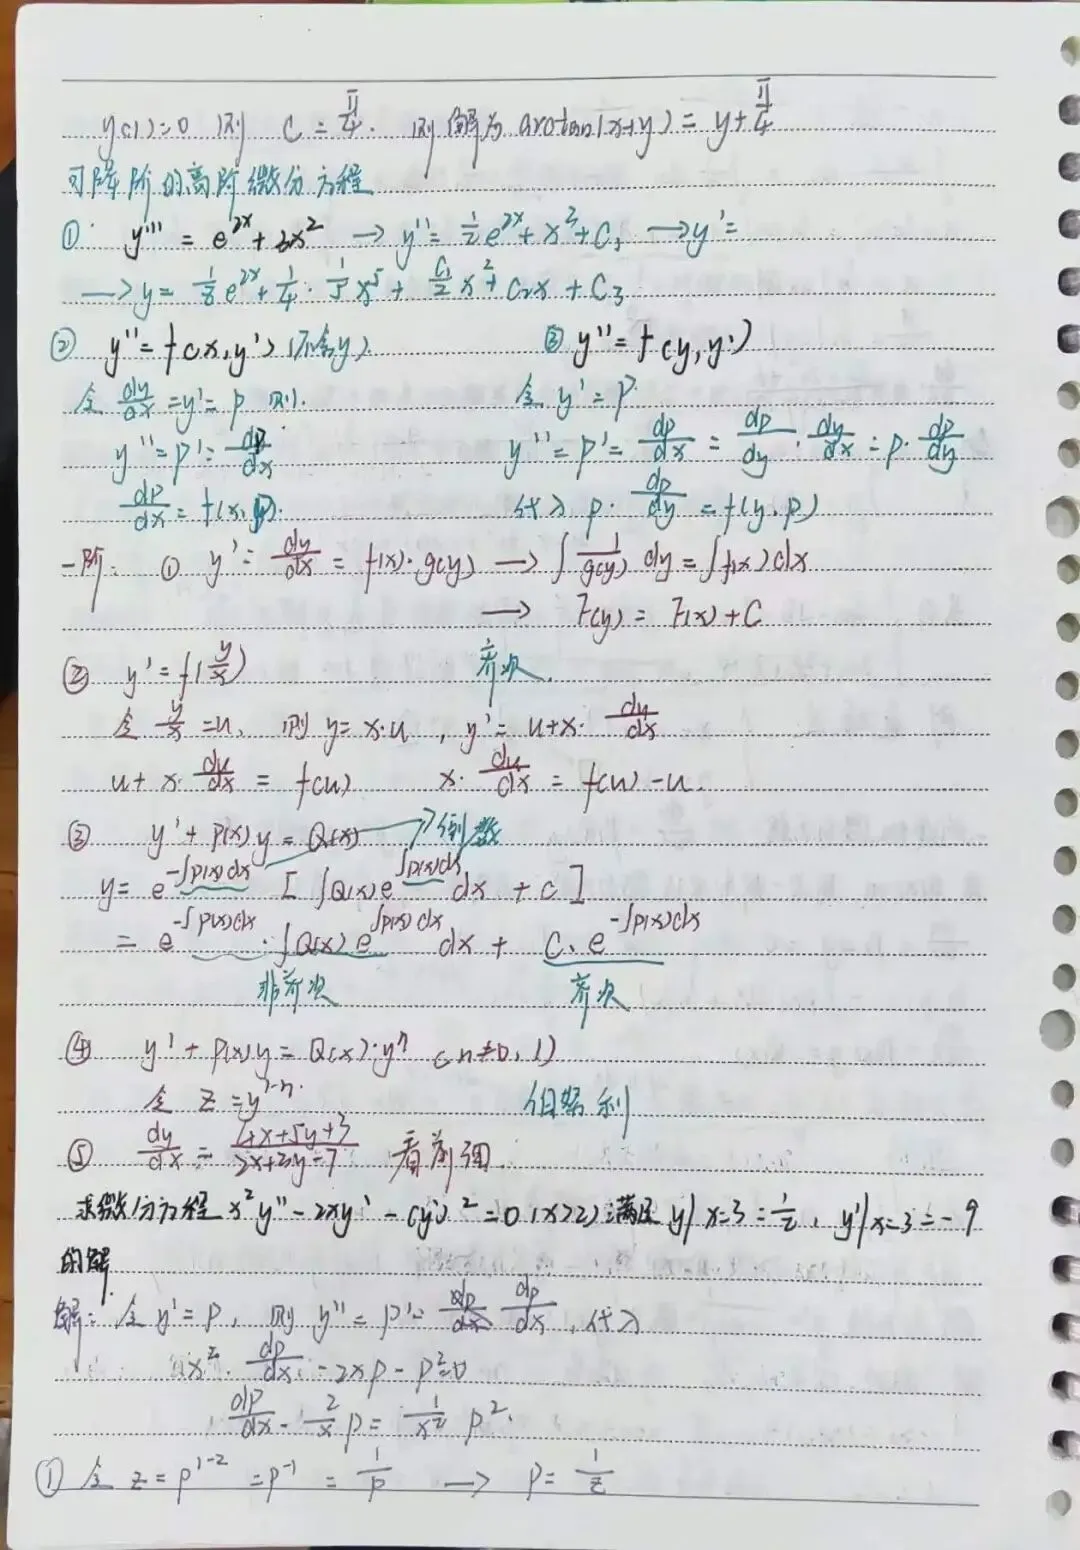 y(1)=0 则 C = π/4. 则解为 arctan(x+y) = y+π/4
可降阶的高阶微分方程
① y''' = e^{2x}+3x^2 → y''= 1/2 e^{2x}+x^3+C_1 → y'=
→ y= 1/8 e^{2x}+1/4·1/5 x^5 + C_1/2 x^2+C_2x+C_3
② y''=f(x,y') (不含y). ③ y''=f(y,y')
令 dy/dx =y'= p 则. 令 y'=P
y''=p'=dp/dx y''=p'=dp/dx = dp/dy · dy/dx = p·dp/dy
dp/dx = f(x,p). 代入 p·dp/dy =f(y,p)
一阶: ① y'=dy/dx = f(x)·g(y) → ∫1/g(y) dy=∫f(x)dx
→ F(y) = F(x)+C
② y'=f(y/x) 齐次.
令 y/x =u, 则 y=x·u , y'=u+x·du/dx
u+x·du/dx = f(u) x·du/dx = f(u)-u.
③ y'+P(x)y=Q(x) → 倒数
y= e^{-∫P(x)dx} [∫Q(x)e^{∫P(x)dx}dx + C]
= e^{-∫P(x)dx}·∫Q(x)e^{∫P(x)dx}dx + C·e^{-∫P(x)dx}
非齐次 齐次
④ y'+P(x)y=Q(x)·y^n (n≠0,1)
令 z=y^{1-n}. 伯努利
⑤ dy/dx = (4x+5y+3)/(2x+3y-7) 看前面.
求微分方程 x^2y''-2xy'-(y')^2=0 (x>2) 满足 y|x=3=1/2, y'|x=3=-9
的解.
解: 令 y'=p, 则 y''=p'= dp/dx, 代入
x^2·dp/dx-2xp-p^2=0
dp/dx-2/x p=1/x^2 p^2.
① 令 z=p^{1-2}=p^{-1}=1/p → p=1/z